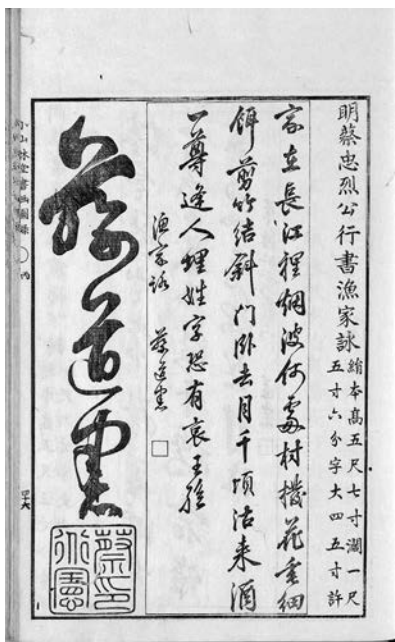 明蔡忠烈公行書漁家詠
綃本高五尺七寸濶一尺
五寸六分字大四五寸許
家在長江裡烟波何處村撥花垂細
餌剪竹結斜门卧去月千頃沽来酒
一尊逢人埋姓字恐有哀王孫
漁家詠 蔡道憲
蔡道憲
蔡印道憲
小山林堂書画圖錄 〇 丙